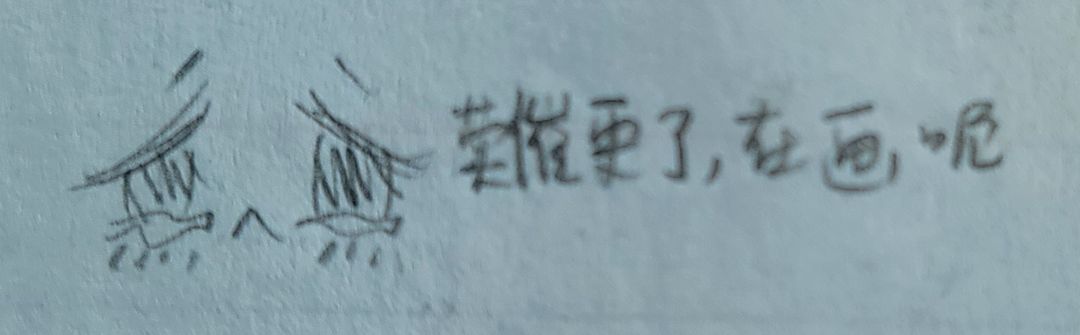 莫催更了,在画,呢